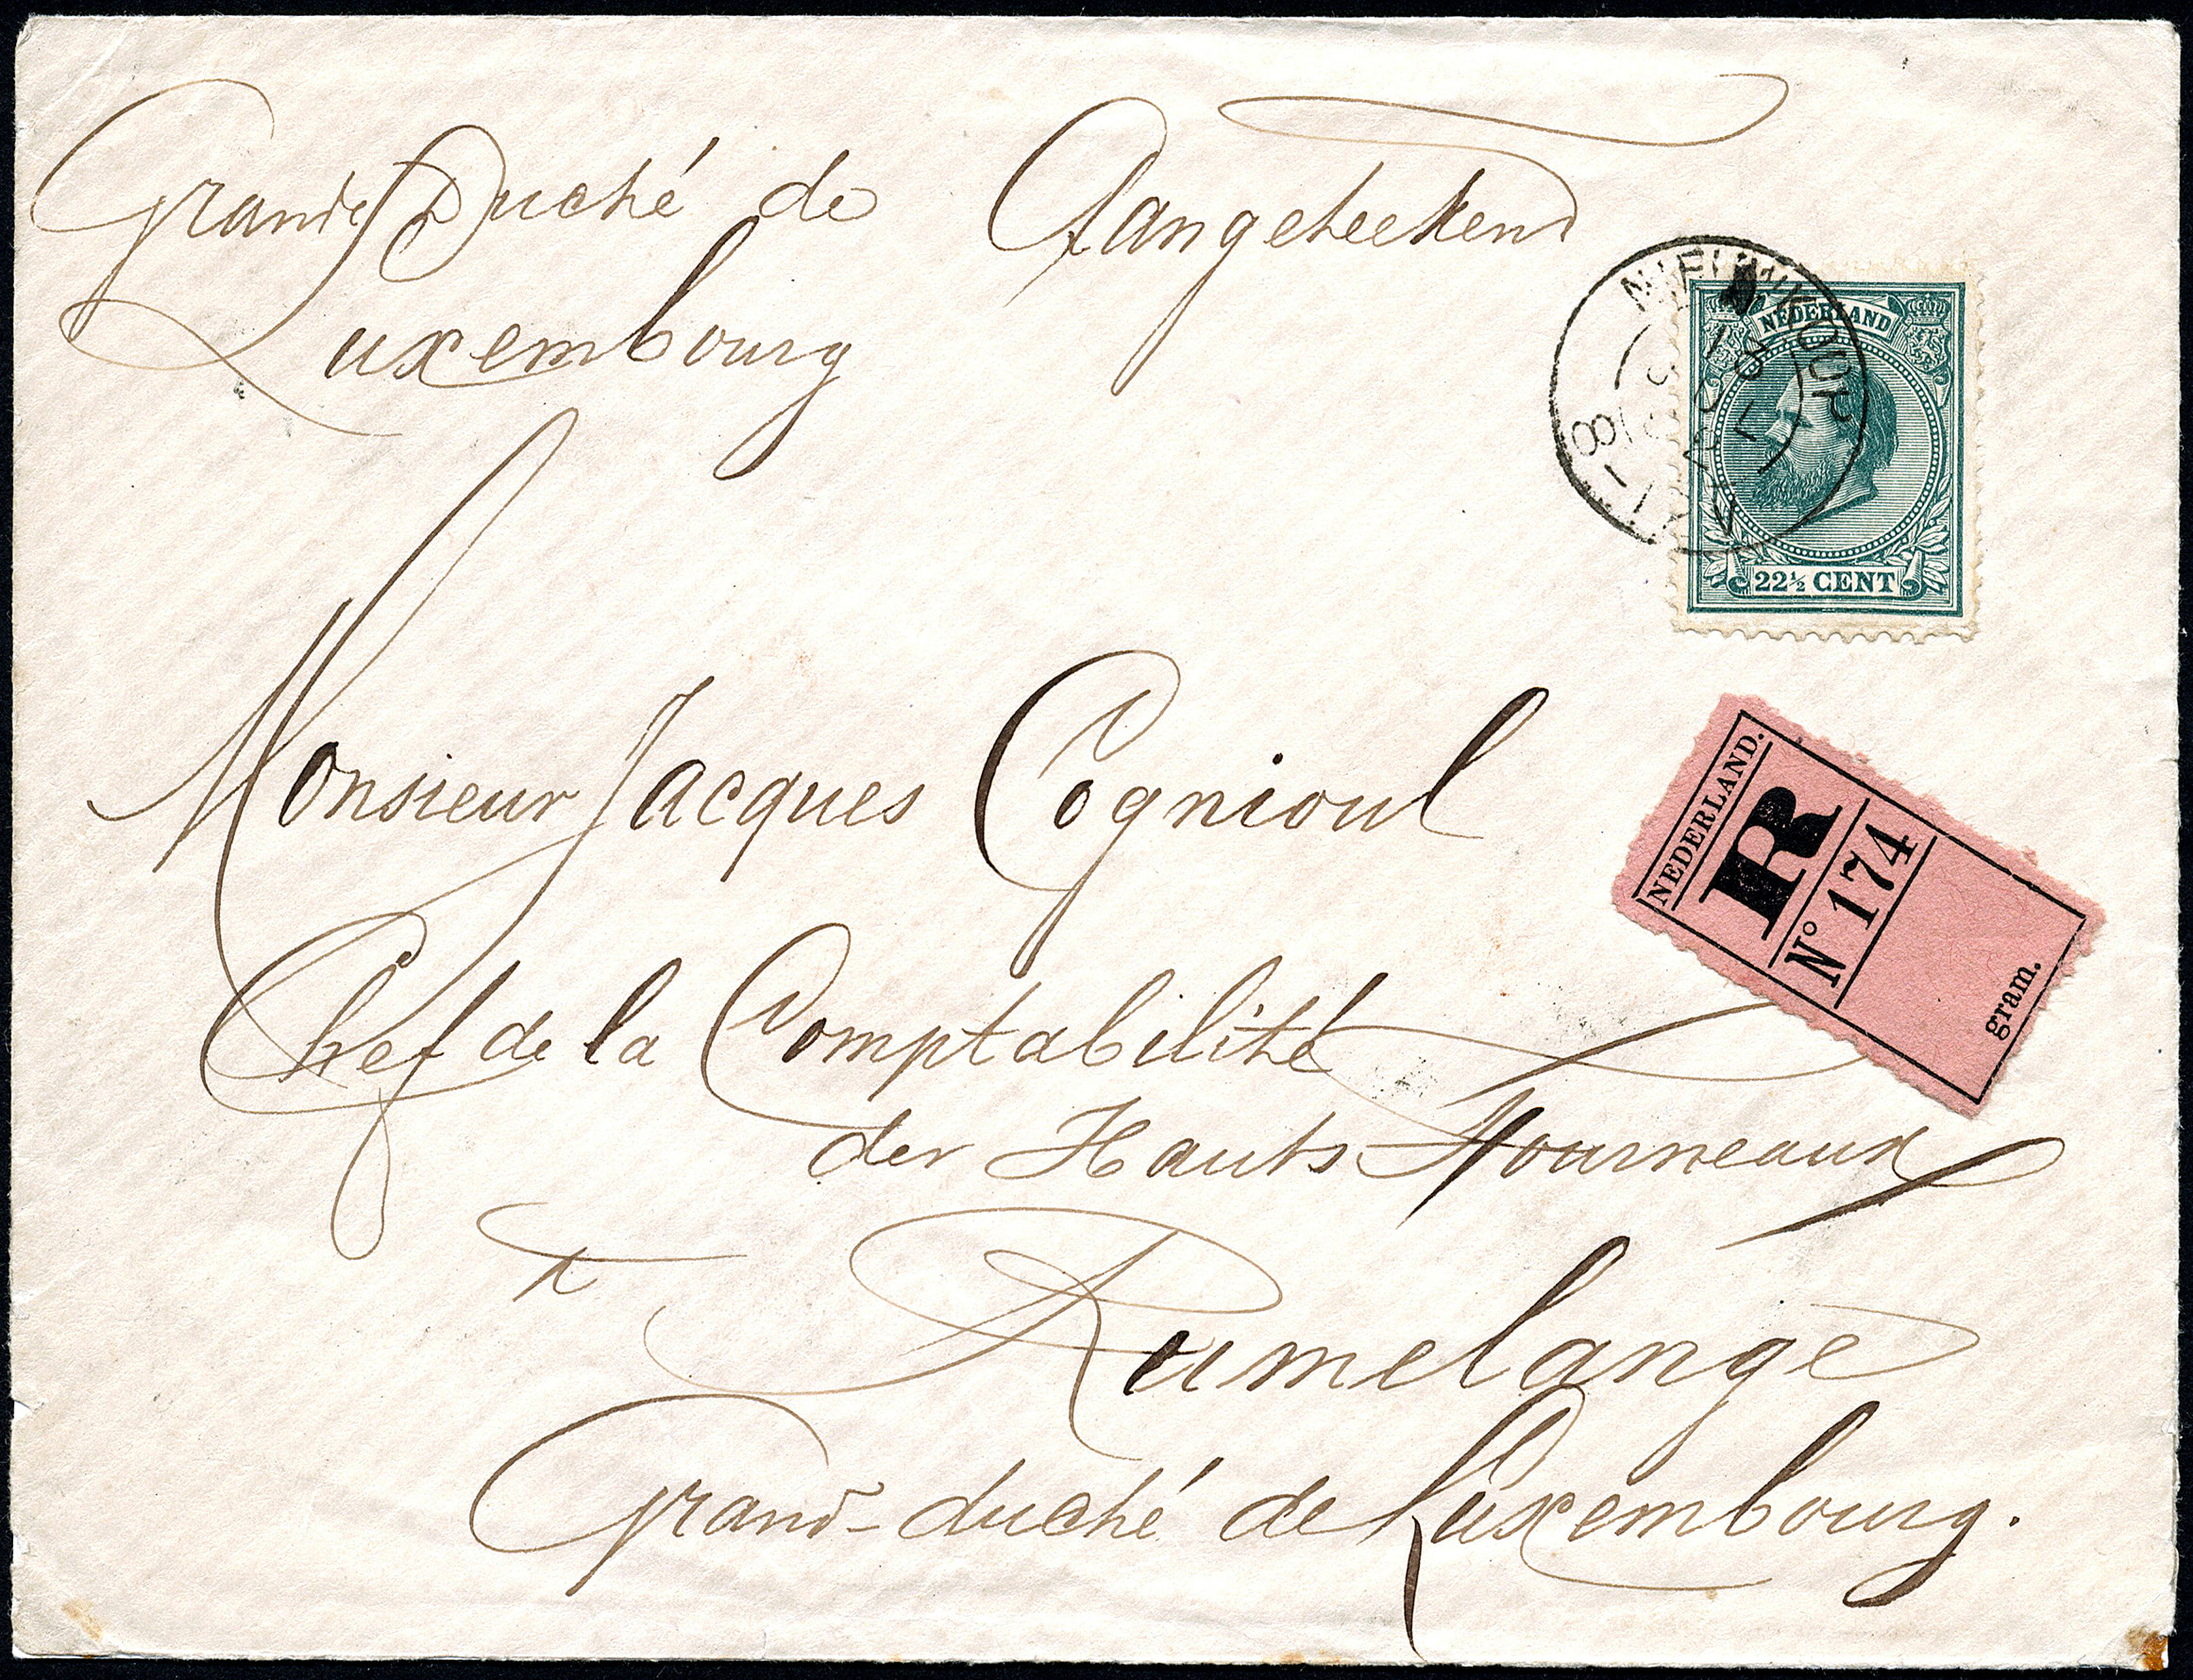 Grande Duché de
Luxembourg
Aangeteekend
NIEUWKUIJK
NEDERLAND
22½ CENT
NEDERLAND.
R
No 174
gram.
Monsieur Jacques Cognioul
Chef de la Comptabilité
des Hauts Fourneaux
à
Rumelange
Grand-duché de Luxembourg.